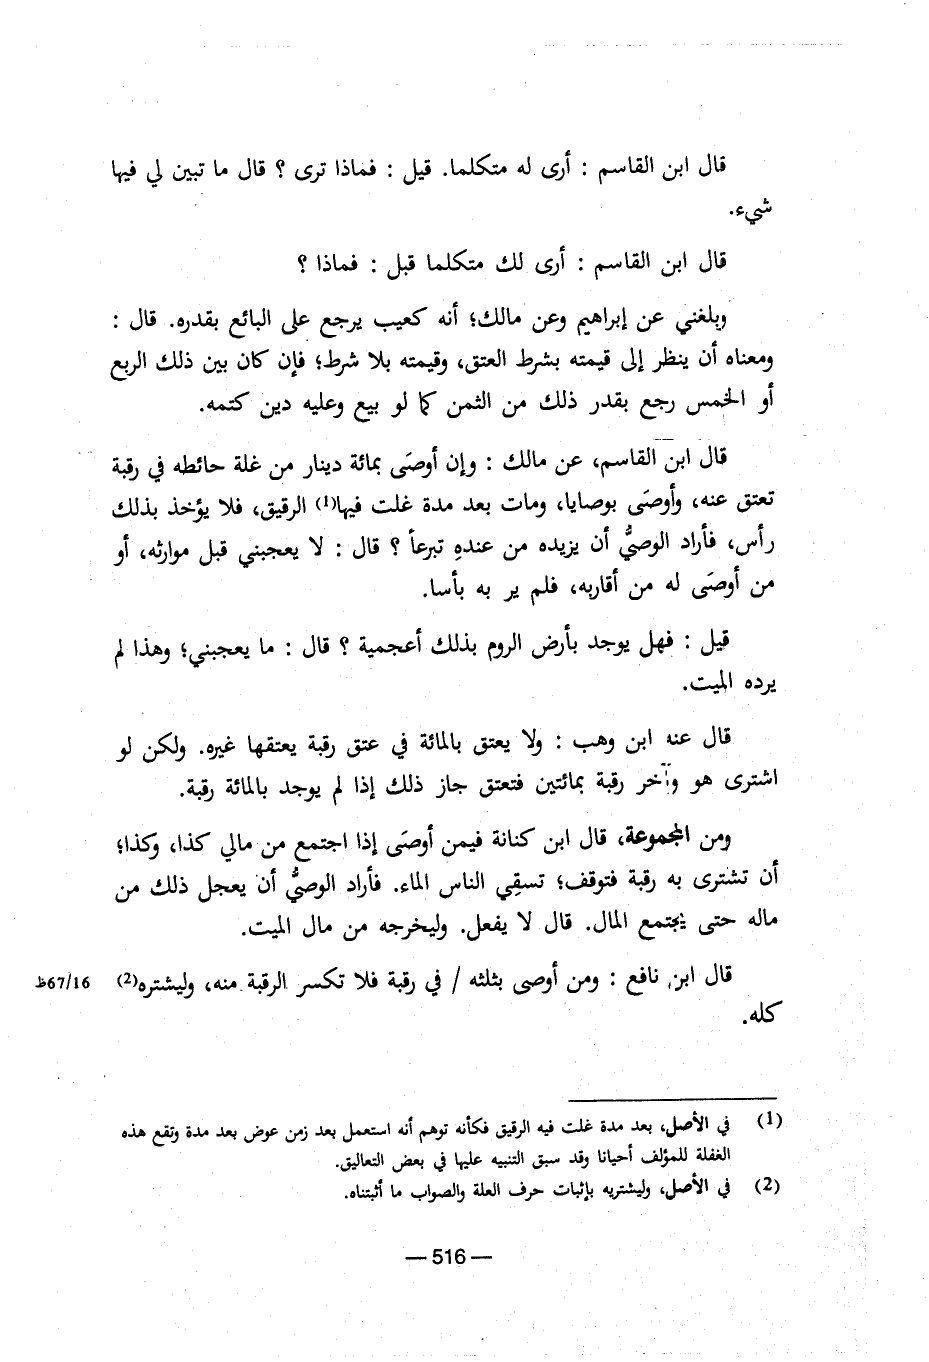 قال ابن القاسم : أرى له متكلما. قيل : فماذا ترى ؟ قال ما تبين لي فيها
شيء.
قال ابن القاسم : أرى لك متكلما قبل : فماذا ؟
وبلغني عن إبراهيم وعن مالك؛ أنه كعيب يرجع على البائع بقدره. قال :
ومعناه أن ينظر إلى قيمته بشرط العتق، وقيمته بلا شرط؛ فإن كان بين ذلك الربع
أو الخمس رجع بقدر ذلك من الثمن كما لو بيع وعليه دين كتمه.
قال ابن القاسم، عن مالك : وإن أوصَى بمائة دينار من غلة حائطه في رقبة
تعتق عنه، وأوصَى بوصايا، ومات بعد مدة غلت فيها(1) الرقيق، فلا يؤخذ بذلك
رأس، فأراد الوصيُّ أن يزيده من عندهِ تبرعاً ؟ قال : لا يعجبني قبل موارثه، أو
من أوصَى له من أقاربه، فلم ير به بأسا.
قيل : فهل يوجد بأرض الروم بذلك أعجمية ؟ قال : ما يعجبني؛ وهذا لم
يرده الميت.
قال عنه ابن وهب : ولا يعتق بالمائة في عتق رقبة يعتقها غيره. ولكن لو
اشترى هو وآخر رقبة بمائتين فتعتق جاز ذلك إذا لم يوجد بالمائة رقبة.
ومن المجموعة، قال ابن كنانة فيمن أوصَى إذا اجتمع من مالي كذا، وكذا؛
أن تشترى به رقبة فتوقف؛ تسقِي الناس الماء. فأراد الوصيُّ أن يعجل ذلك من
ماله حتى يجتمع المال. قال لا يفعل. وليخرجه من مال الميت.
قال ابن نافع : ومن أوصى بثلثه / في رقبة فلا تكسر الرقبة منه، وليشتره(2) 67/16ظ
كله.
(1) في الأصل، بعد مدة غلت فيه الرقيق فكأنه توهم أنه استعمل بعد زمن عوض بعد مدة وتقع هذه
الغفلة للمؤلف أحيانا وقد سبق التنبيه عليها في بعض التعاليق.
(2) في الأصل، وليشتريه بإثبات حرف العلة والصواب ما أثبتناه.
— 516 —